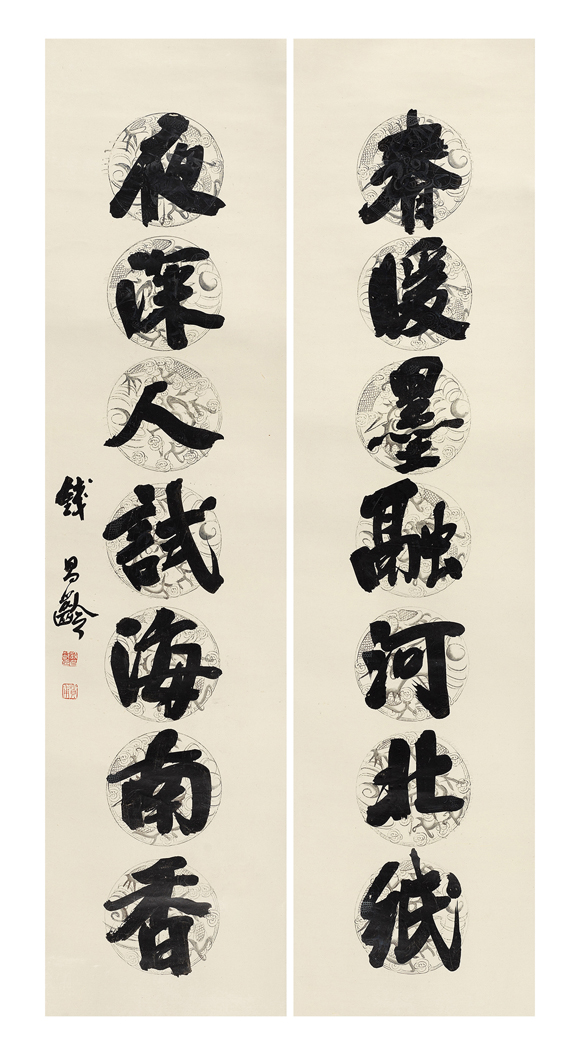 春暖墨融河北紙
夜深人試海南香
錢昌齡